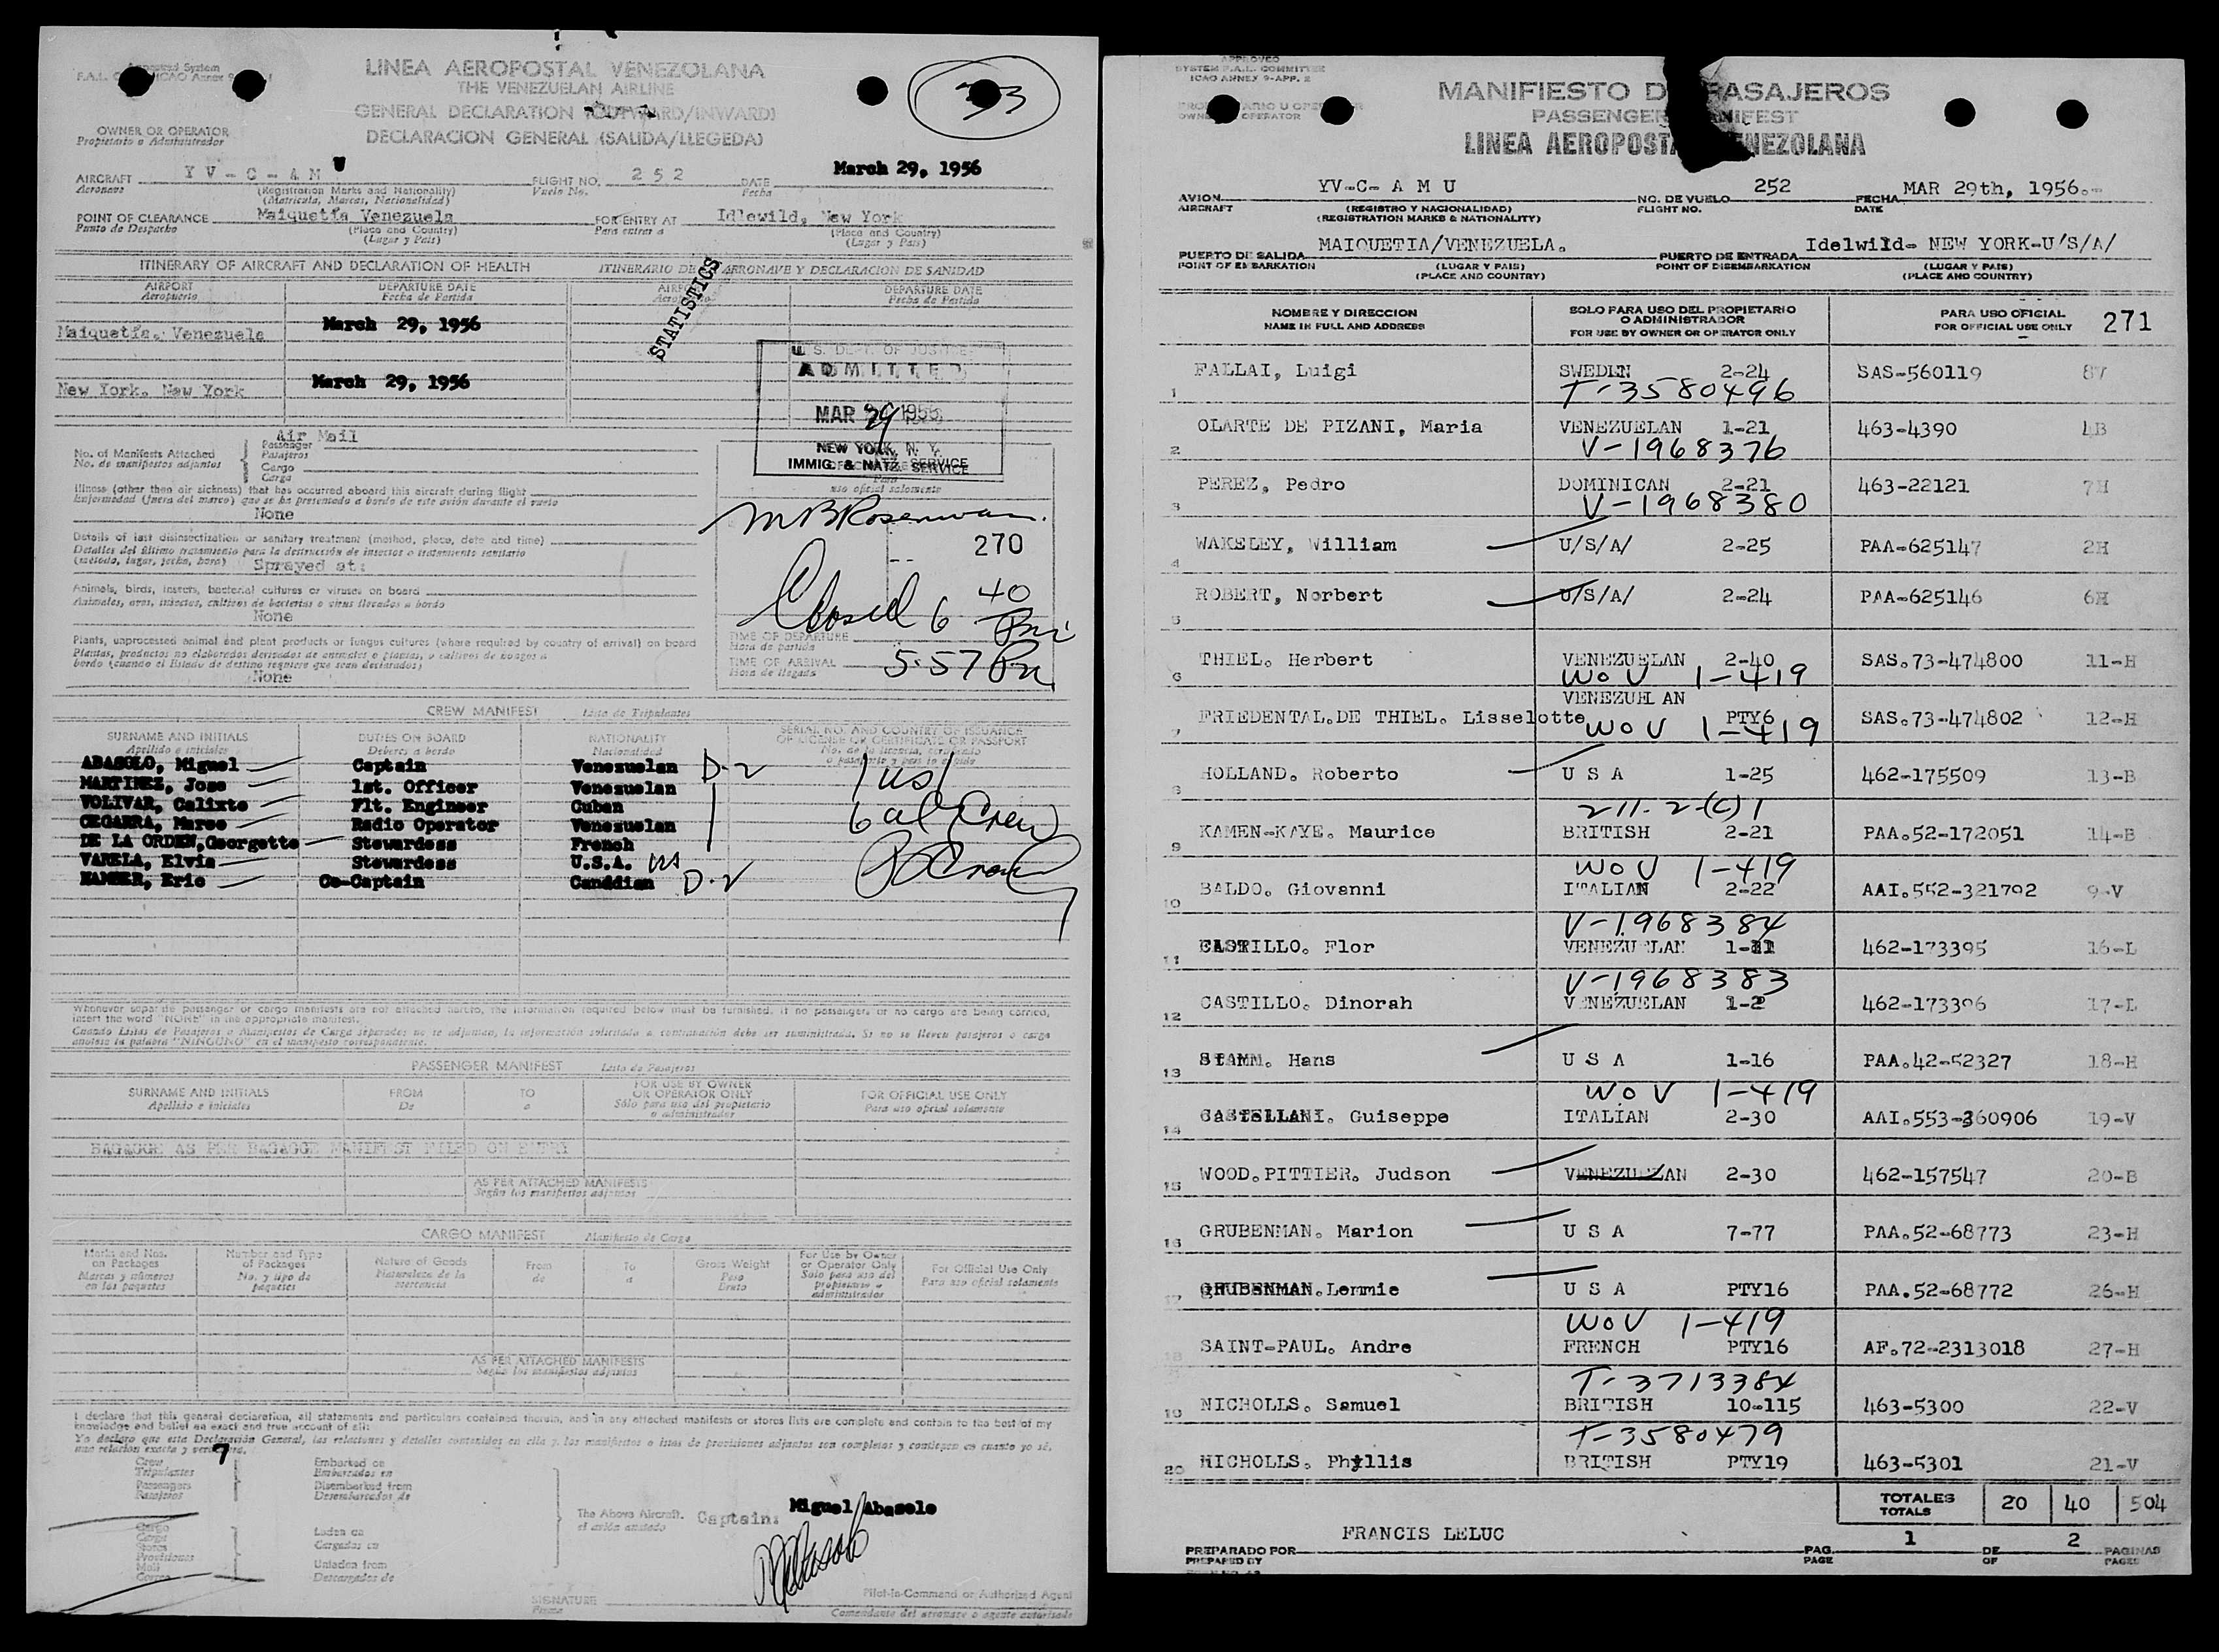 LINEA AEROPOSTAL VENEZOLANA
THE VENEZUELAN AIRLINE
GENERAL DECLARATION (OUTWARD/INWARD)
DECLARACION GENERAL (SALIDA/LLEGEDA)
33
OWNER OR OPERATOR
Propietario o Administrador
AIRCRAFT YV-C-AM U FLIGHT NO. 252 DATE March 29, 1956
Aeronave (Registration Marks and Nationality) Vuelo No. Fecha
(Matricula, Marcas, Nacionalidad)
POINT OF CLEARANCE Maiquetía Venezuela FOR ENTRY AT Idlewild, New York
Punto de Despacho (Place and Country) Para entrar a (Place and Country)
(Lugar y Pais) (Lugar y Pais)
ITINERARY OF AIRCRAFT AND DECLARATION OF HEALTH ITINERARIO DE AERONAVE Y DECLARACION DE SANIDAD
AIRPORT DEPARTURE DATE DEPARTURE DATE
Aeropuerto Fecha de Partida Fecha de Partida
STATISTICS
Maiquetía, Venezuela March 29, 1956
New York, New York March 29, 1956
U. S. DEPT. OF JUSTICE
ADMITTED
MAR 29 1956
NEW YORK, N. Y.
IMMIG. & NATZ. SERVICE
Air Mail
No. of Manifests Attached Passenger
No. de manifiestos adjuntos Pasajeros
Cargo
Carga
uso oficial solamente
Illness (other then air sickness) that has occurred aboard this aircraft during flight
Enfermedad (fuera del mareo) que se ha presentado a bordo de este avión durante el vuelo
None
Details of last disinsectization or sanitary treatment (method, place, date and time)
Detalles del último tratamiento para la destrucción de insectos o tratamiento sanitario
(método, lugar, fecha, hora) Sprayed at:
270
Closed 6 40 Pm
Animals, birds, insects, bacterial cultures or viruses on board
None
Plants, unprocessed animal and plant products or fungus cultures (where required by country of arrival) on board
Plantas, productos no elaborados derivados de animales o plantas, o cultivos de hongos a
bordo (cuando el Estado de destino requiere que sean declarados)
None
TIME OF DEPARTURE
Hora de partida
TIME OF ARRIVAL 5:57 Pm
Hora de llegada
CREW MANIFEST Lista de Tripulantes
SURNAME AND INITIALS DUTIES ON BOARD NATIONALITY SERIAL NO. AND COUNTRY OF ISSUANCE
Apellido e iniciales Deberes a bordo Nacionalidad OF LICENSE OR CERTIFICATE OR PASSPORT
ABASOLO, Miguel Captain Venezuelan D-2 1 US
MARTINEZ, Jose 1st. Officer Venezuelan
VOLIVAR, Calixto Flt. Engineer Cuban 6 al Crew
CEGARRA, Marco Radio Operator Venezuelan
DE LA ORDEN, Georgette Stewardess French
VARELA, Elvia Stewardess U.S.A. US
Eric Co-Captain Canadian D-2
Whenever separate passenger or cargo manifests are not attached hereto, the information required below must be furnished. If no passengers or no cargo are being carried,
insert the word "NONE" in the appropriate manifest.
Cuando Listas de Pasajeros o Manifiestos de Carga separados no se adjuntan, la información solicitada a continuación debe ser suministrada. Si no se lleven pasajeros o carga
anotese la palabra "NINGUNO" en el manifiesto correspondiente.
PASSENGER MANIFEST Lista de Pasajeros
SURNAME AND INITIALS FROM TO FOR USE BY OWNER OR OPERATOR ONLY FOR OFFICIAL USE ONLY
Apellido e iniciales De a Sólo para uso del propietario o administrador Para uso oficial solamente
BAGAGGE AS PER BAGAGGE MANIFEST FILED ON ENTRY
AS PER ATTACHED MANIFESTS
Según los manifiestos adjuntos
CARGO MANIFEST Manifiesto de Carga
Marks and Nos. on Packages Number and Type of Packages Nature of Goods From To Gross Weight For Use by Owner or Operator Only For Official Use Only
Marcas y números en los paquetes No. y tipo de paquetes Naturaleza de la mercancia de a Peso Bruto Solo para uso del propietario o administrador Para uso oficial solamente
AS PER ATTACHED MANIFESTS
Según los manifiestos adjuntos
I declare that this general declaration, all statements and particulars contained therein, and in any attached manifests or stores lists are complete and contain to the best of my
knowledge and belief an exact and true account of all:
Yo declaro que esta Declaración General, las relaciones y detalles contenidos en ella y los manifiestos o listas de provisiones adjuntos son completos y contienen en cuanto yo sé,
una relación exacta y
Crew 7 Embarked on
Tripulantes Embarcados en
Passengers Disembarked from
Pasajeros Desembarcados de
The Above Aircraft. Captain: Miguel Abasolo
el avión anotado
Cargo Laden on
Carga Cargados en
Stores
Provisiones Unladen from
Mail Descargados de
Correo
SIGNATURE
Firma
Pilot-in-Command or Authorized Agent
Comandante del aeronave o agente autorizado
APPROVED
SYSTEM F.A.L. COMMITTEE
ICAO ANNEX 9-APP. 2
MANIFIESTO DE PASAJEROS
PASSENGER MANIFEST
LINEA AEROPOSTAL VENEZOLANA
AVION YV-C- A M U NO. DE VUELO 252 FECHA MAR 29th, 1956.-
AIRCRAFT (REGISTRO Y NACIONALIDAD) FLIGHT NO. DATE
(REGISTRATION MARKS & NATIONALITY)
PUERTO DE SALIDA MAIQUETIA/VENEZUELA. PUERTO DE ENTRADA Idelwild- NEW YORK-U/S/A/
POINT OF EMBARKATION (LUGAR Y PAIS) POINT OF DISEMBARKATION (LUGAR Y PAIS)
(PLACE AND COUNTRY) (PLACE AND COUNTRY)
NOMBRE Y DIRECCION SOLO PARA USO DEL PROPIETARIO O ADMINISTRADOR PARA USO OFICIAL 271
NAME IN FULL AND ADDRESS FOR USE BY OWNER OR OPERATOR ONLY FOR OFFICIAL USE ONLY
1 FALLAI, Luigi SWEDEN 2-24 SAS-560119 8V
T-3580496
2 OLARTE DE PIZANI, Maria VENEZUELAN 1-21 463-4390 4B
V-1968376
3 PEREZ, Pedro DOMINICAN 2-21 463-22121 7H
V-1968380
4 WAKELEY, William U/S/A/ 2-25 PAA-625147 2H
5 ROBERT, Norbert U/S/A/ 2-24 PAA-625146 6H
6 THIEL. Herbert VENEZUELAN 2-40 SAS.73-474800 11-H
WOV 1-419
VENEZUELAN
7 FRIEDENTAL.DE THIEL. Lisselotte PTY6 SAS.73-474802 12-H
WOV 1-419
8 HOLLAND. Roberto U S A 1-25 462-175509 13-B
211.2(c)1
9 KAMEN-KAYE. Maurice BRITISH 2-21 PAA.52-172051 14-B
WOV 1-419
10 BALDO. Giovanni ITALIAN 2-22 AAI.552-321792 9-V
V-1968384
11 CASTILLO. Flor VENEZUELAN 1-21 462-173395 16-L
V-1968383
12 CASTILLO. Dinorah VENEZUELAN 1-2 462-173396 17-L
13 STAMM. Hans U S A 1-16 PAA.42-52327 18-H
WOV 1-419
14 CASTELLANI. Guiseppe ITALIAN 2-30 AAI.553-360906 19-V
15 WOOD.PITTIER. Judson VENEZUELAN 2-30 462-157547 20-B
16 GRUBENMAN. Marion U S A 7-77 PAA.52-68773 23-H
17 GRUBENMAN.Lemmie U S A PTY16 PAA.52-68772 26-H
WOV 1-419
18 SAINT-PAUL. Andre FRENCH PTY16 AF.72-2313018 27-H
T-3713384
19 NICHOLLS. Samuel BRITISH 10-115 463-5300 22-V
T-3580479
20 NICHOLLS. Phyllis BRITISH PTY19 463-5301 21-V
TOTALES 20 40 504
TOTALS
PREPARADO POR FRANCIS LELUC PAG. 1 DE 2 PAGINAS
PREPARED BY PAGE OF PAGES